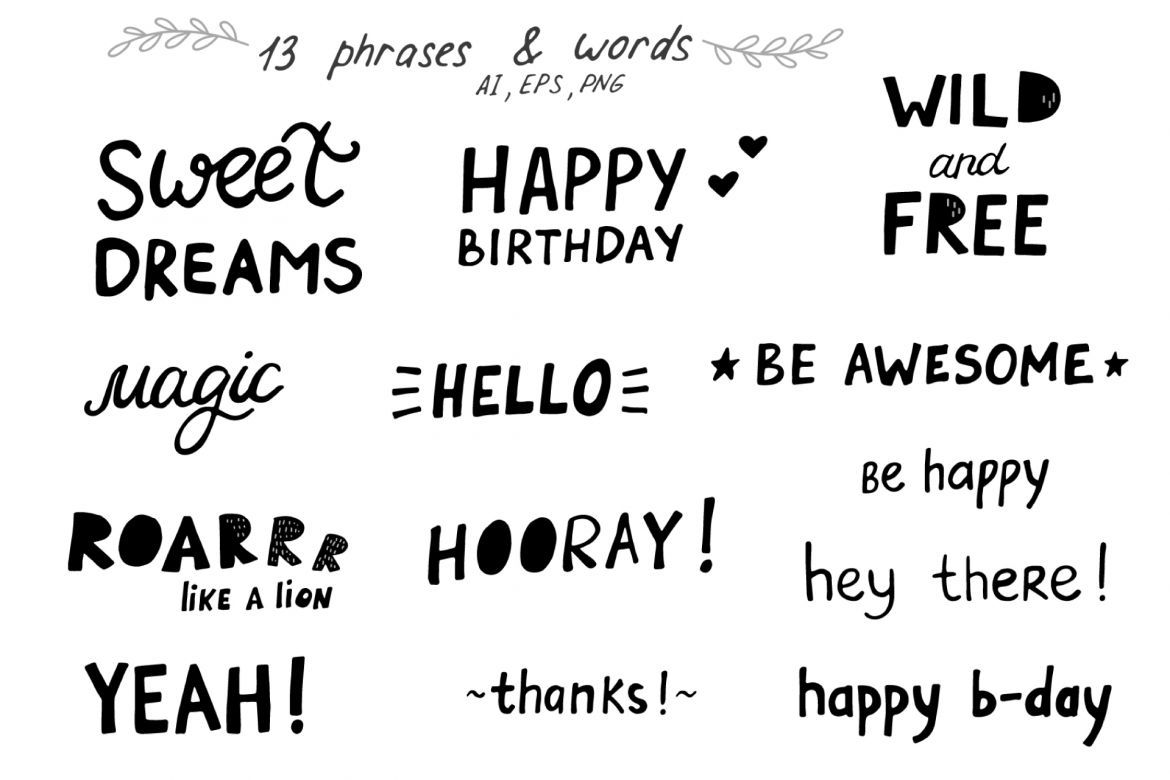 13 phrases & words
AI, EPS, PNG
Sweet
DREAMS
HAPPY
BIRTHDAY
WILD
and
FREE
magic
HELLO
BE AWESOME
Be happy
ROARRR
liKE A liON
HOORAY!
hey theRe!
YEAH!
~thanks!~
happy b-day